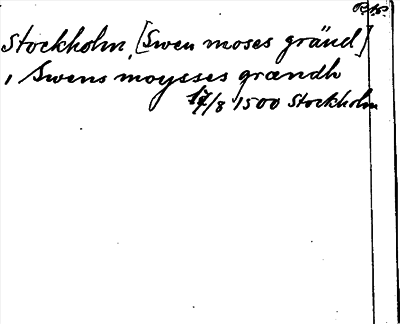 Stockholm, [Swen moses gränd]
, Swens moysses grændh
17/8 1500 Stockholm